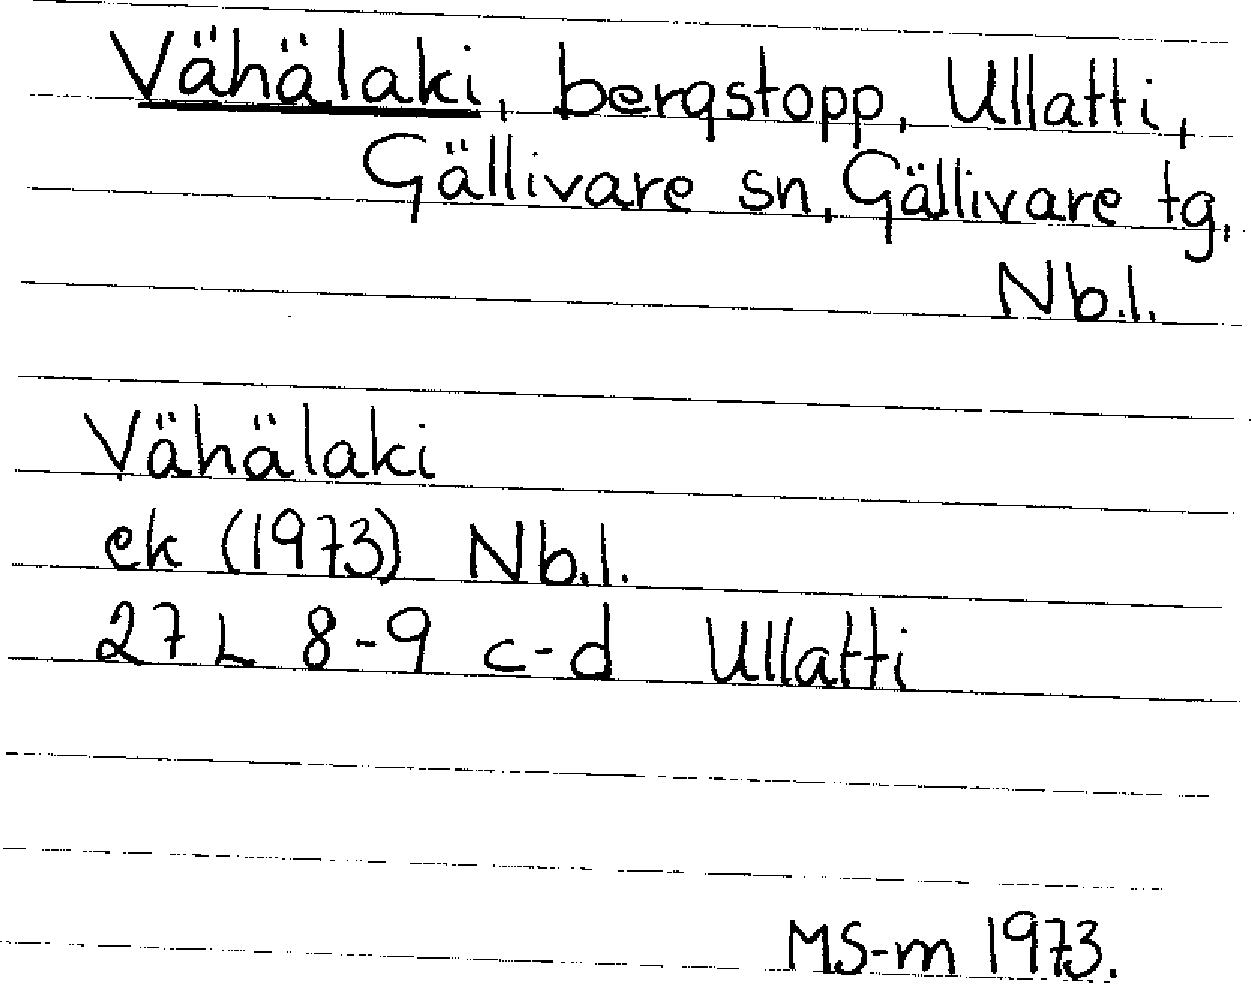 Vähälaki, bergstopp, Ullatti,
Gällivare sn, Gällivare tg,
Nb.l.
Vähälaki
ek (1973) Nb.l.
27 L 8-9 c-d Ullatti
MS-m 1973.